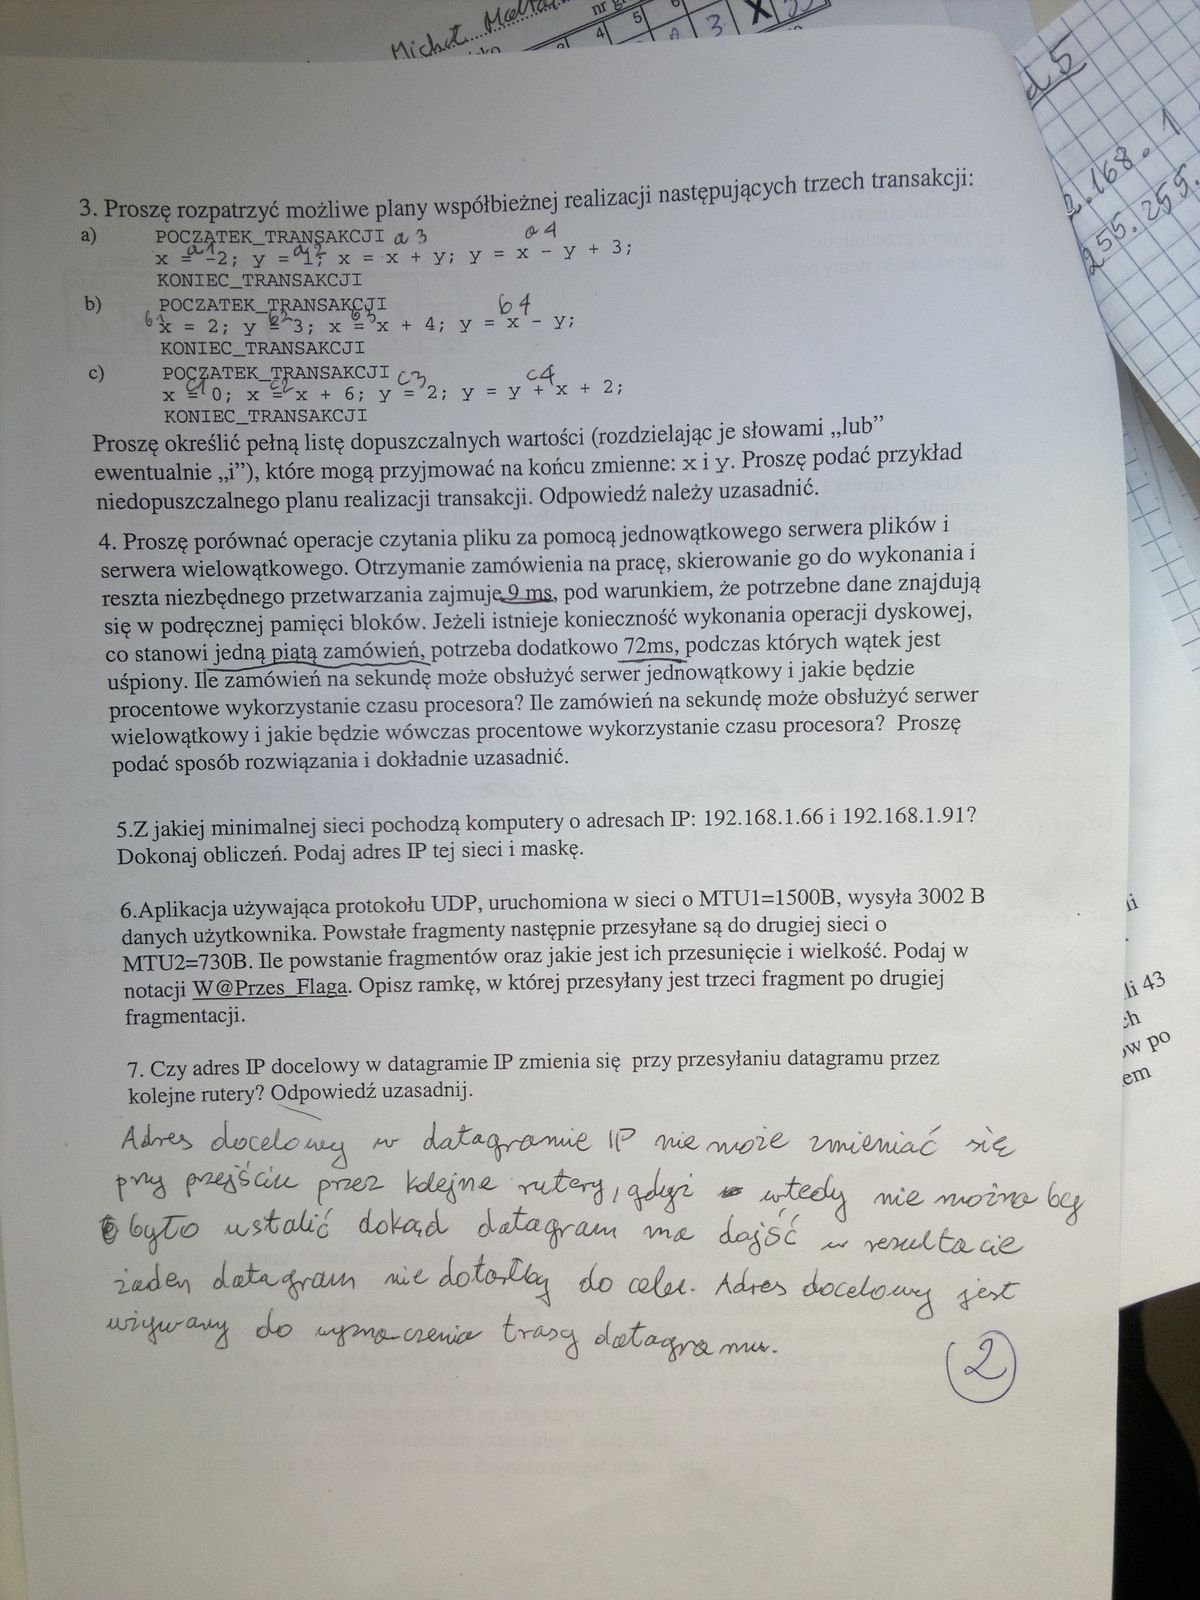 Michał
nr
4 5 6
A 3 X
d 5
2.168.1
255.255.
3. Proszę rozpatrzyć możliwe plany współbieżnej realizacji następujących trzech transakcji:
a) POCZĄTEK_TRANSAKCJI a3 a4
a1 a2
x = -2; y = 1; x = x + y; y = x - y + 3;
KONIEC_TRANSAKCJI
b) POCZATEK_TRANSAKCJI b4
b1 b2 b3
x = 2; y = 3; x = x + 4; y = x - y;
KONIEC_TRANSAKCJI
c) POCZATEK_TRANSAKCJI c3 c4
c1 c2
x = 0; x = x + 6; y = 2; y = y + x + 2;
KONIEC_TRANSAKCJI
Proszę określić pełną listę dopuszczalnych wartości (rozdzielając je słowami „lub”
ewentualnie „i”), które mogą przyjmować na końcu zmienne: x i y. Proszę podać przykład
niedopuszczalnego planu realizacji transakcji. Odpowiedź należy uzasadnić.
4. Proszę porównać operacje czytania pliku za pomocą jednowątkowego serwera plików i
serwera wielowątkowego. Otrzymanie zamówienia na pracę, skierowanie go do wykonania i
reszta niezbędnego przetwarzania zajmuje 9 ms, pod warunkiem, że potrzebne dane znajdują
się w podręcznej pamięci bloków. Jeżeli istnieje konieczność wykonania operacji dyskowej,
co stanowi jedną piątą zamówień, potrzeba dodatkowo 72ms, podczas których wątek jest
uśpiony. Ile zamówień na sekundę może obsłużyć serwer jednowątkowy i jakie będzie
procentowe wykorzystanie czasu procesora? Ile zamówień na sekundę może obsłużyć serwer
wielowątkowy i jakie będzie wówczas procentowe wykorzystanie czasu procesora? Proszę
podać sposób rozwiązania i dokładnie uzasadnić.
5.Z jakiej minimalnej sieci pochodzą komputery o adresach IP: 192.168.1.66 i 192.168.1.91?
Dokonaj obliczeń. Podaj adres IP tej sieci i maskę.
6.Aplikacja używająca protokołu UDP, uruchomiona w sieci o MTU1=1500B, wysyła 3002 B
danych użytkownika. Powstałe fragmenty następnie przesyłane są do drugiej sieci o
MTU2=730B. Ile powstanie fragmentów oraz jakie jest ich przesunięcie i wielkość. Podaj w
notacji W@Przes_Flaga. Opisz ramkę, w której przesyłany jest trzeci fragment po drugiej
fragmentacji.
7. Czy adres IP docelowy w datagramie IP zmienia się przy przesyłaniu datagramu przez
kolejne rutery? Odpowiedź uzasadnij.
Adres docelowy w datagramie IP nie może zmieniać się
przy przejściu przez kolejne rutery, gdyż wtedy nie można by
było ustalić dokąd datagram ma dojść w rezultacie
żaden datagram nie dotarłby do celu. Adres docelowy jest
używany do wyznaczenia trasy datagramu.
2
li
li 43
ch
ów po
em